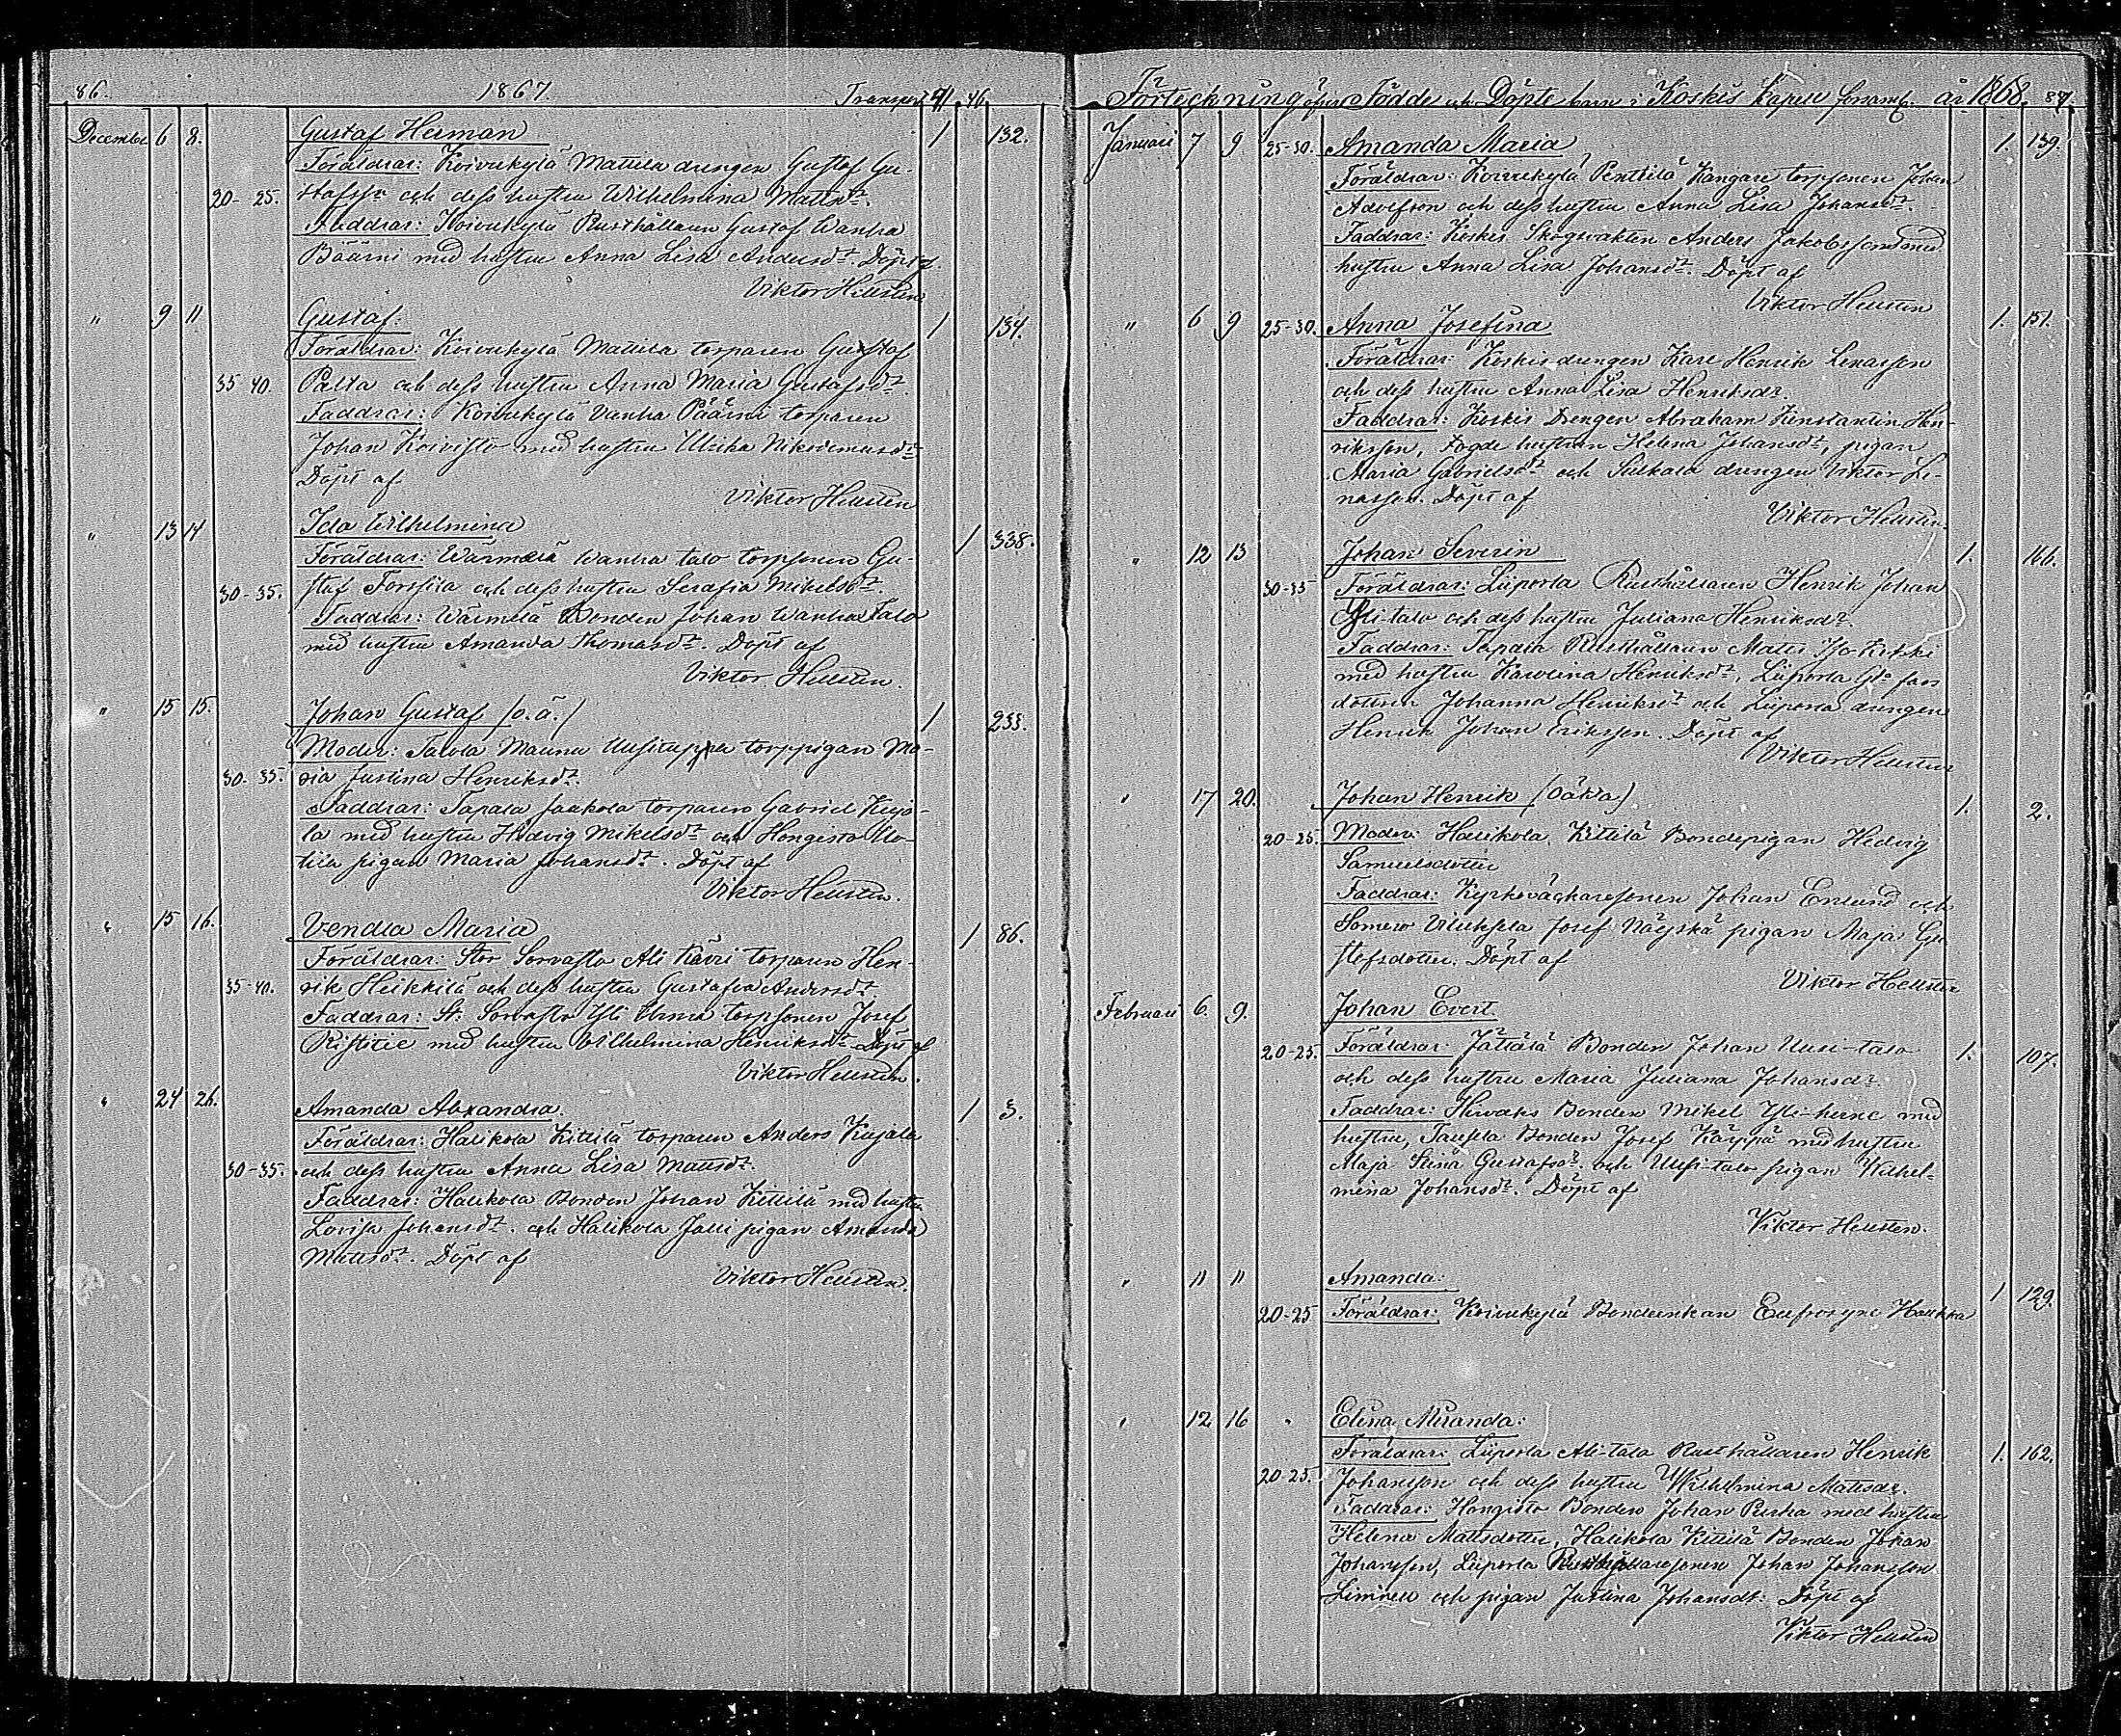 86. 1867. Transport 41. 46.
December 6 8. Gustaf Herman 1 132.
Föräldrar: Koivukylä Mattila drengen Gustaf Gu-
20-25. stafssn och dess hustru Wilhelmina Mattsdr.
Faddrar: Koivukylä Rusthållaren Gustaf Wanha
Päärni med hustru Anna Lisa Andersdr. Döpt af
Viktor Hellsten
" 9 11 Gustaf. 1 134.
Föräldrar: Koivukylä Mattila torparen Gustaf
35-40. Palta och dess hustru Anna Maria Gustafsdr.
Faddrar: Koivukylä Vanha Päärni torparen
Johan Koivisto med hustru Ulrika Nikodemusdr
Döpt af
Viktor Hellsten
" 13 14 Ida Wilhelmina 1 338.
Föräldrar: Wärmelä Wanha talo torpsonen Gu-
30-35. staf Forssila och dess hustru Serafia Mikelsdr.
Faddrar: Wärmelä Bonden Johan Wanha Talo
med hustru Amanda Thomasdr. Döpt af
Viktor Hellsten.
" 15 15. Johan Gustaf (o.ä.) 1 233.
Moder: Talola Maunu Uusitupa torppigan Ma-
30-35. ria Justina Henriksdr.
Faddrar: Tapala Jaakola torparen Gabriel Kuja-
la med hustru Hedvig Mikelsdr och Hongisto Uo-
tila pigan Maria Johansdr. Döpt af
Viktor Hellsten.
" 15 16. Vendla Maria 1 86.
Föräldrar: Stor Sorvasto Ali Kävri torparen Hen-
35-40. rik Heikkilä och dess hustru Gustafva Andersdr
Faddrar: St. Sorvasto Yli torpsonen Josef
Ristitie med hustru Wilhelmina Henriksdr Döpt af
Viktor Hellsten.
" 24 26. Amanda Alexandra. 1 3.
Föräldrar: Halikola Kittilä torparen Anders Kujala
30-35. och dess hustru Anna Lisa Mattsdr.
Faddrar: Halikola Bonden Johan Kittilä med hustru
Lovisa Johansdr. och Halikola Jalli pigan Amanda
Mattsdr. Döpt af
Viktor Hellsten.
Förteckning öfver Födde och Döpte barn i Koskis Kapell församl. år 1868. 87.
Januari 7 9 25-30. Amanda Maria 1. 139.
Föräldrar: Koivukylä Penttilä Kangare torpsonen Johan
Adolfson och dess hustru Anna Lisa Johansdr.
Faddrar: Koskis Skogvakten Anders Jakobsson med
hustru Anna Lisa Johansdr. Döpt af
Viktor Hellsten
" 6 9 25-30. Anna Josefina 1. 151.
Föräldrar: Koskis drengen Karl Henrik Lenasson
och dess hustru Anna Lisa Henriksdr.
Faddrar: Koskis Drengen Abraham Konstantin Hen-
riksson, Fogde hustrun Helena Johansdr, pigan
Maria Gabrielsdr och Sulkala drengen Viktor Le-
nasson. Döpt af
Viktor Hellsten.
" 12 13 Johan Severin 1. 166.
30-35 Föräldrar: Liiporla Rusthållaren Henrik Johan
Yli-talo och dess hustru Juliana Henriksdr.
Faddrar: Tapala Rusthållaren Matts Iso-Kikki
med hustru Karolina Henriksdr, Liiporla
dottern Johanna Henriksdr och Liiporla drengen
Henrik Johan Eriksson. Döpt af
Viktor Hellsten
" 17 20. Johan Henrik (Oäkta) 1. 2.
20-25. Moder: Halikola Kittilä Bondepigan Hedvig
Samuelsdotter
Faddrar: Kyrkoväktaresonen Johan Enlund och
Somero Viluksela Josef Näyskä pigan Maja Gu-
stafsdotter. Döpt af
Viktor Hellsten
Februari 6. 9. Johan Evert.
20-25. Föräldrar: Jätiälä Bonden Johan Uusi-talo 1. 107.
och dess hustru Maria Juliana Johansdr.
Faddrar: Hirvaks Bonden Mikel Yli-herne med
hustru, Taufsla Bonden Josef Käyppä med hustru
Maja Stina Gustafsdr. och Uusi-talo pigan Wilhel-
mina Johansdr. Döpt af
Viktor Hellsten.
" 11 11 Amanda. 1 129.
20-25 Föräldrar: Koivukylä Bondeenkan Eufrosyne Haukka
" 12 16 Elina Miranda:
Föräldrar: Liiporla Ali-talo Rusthållaren Henrik 1. 162.
20-25. Johansson och dess hustru Wilhelmina Mattsdr.
Faddrar: Hongisto Bonden Johan Perha med hustru
Helena Mattsdotter, Halikola Kittilä Bonden Johan
Johansson, Liiporla Rusthållaresonen Johan Johansson
och pigan Justina Johansdr. Döpt af
Viktor Hellsten